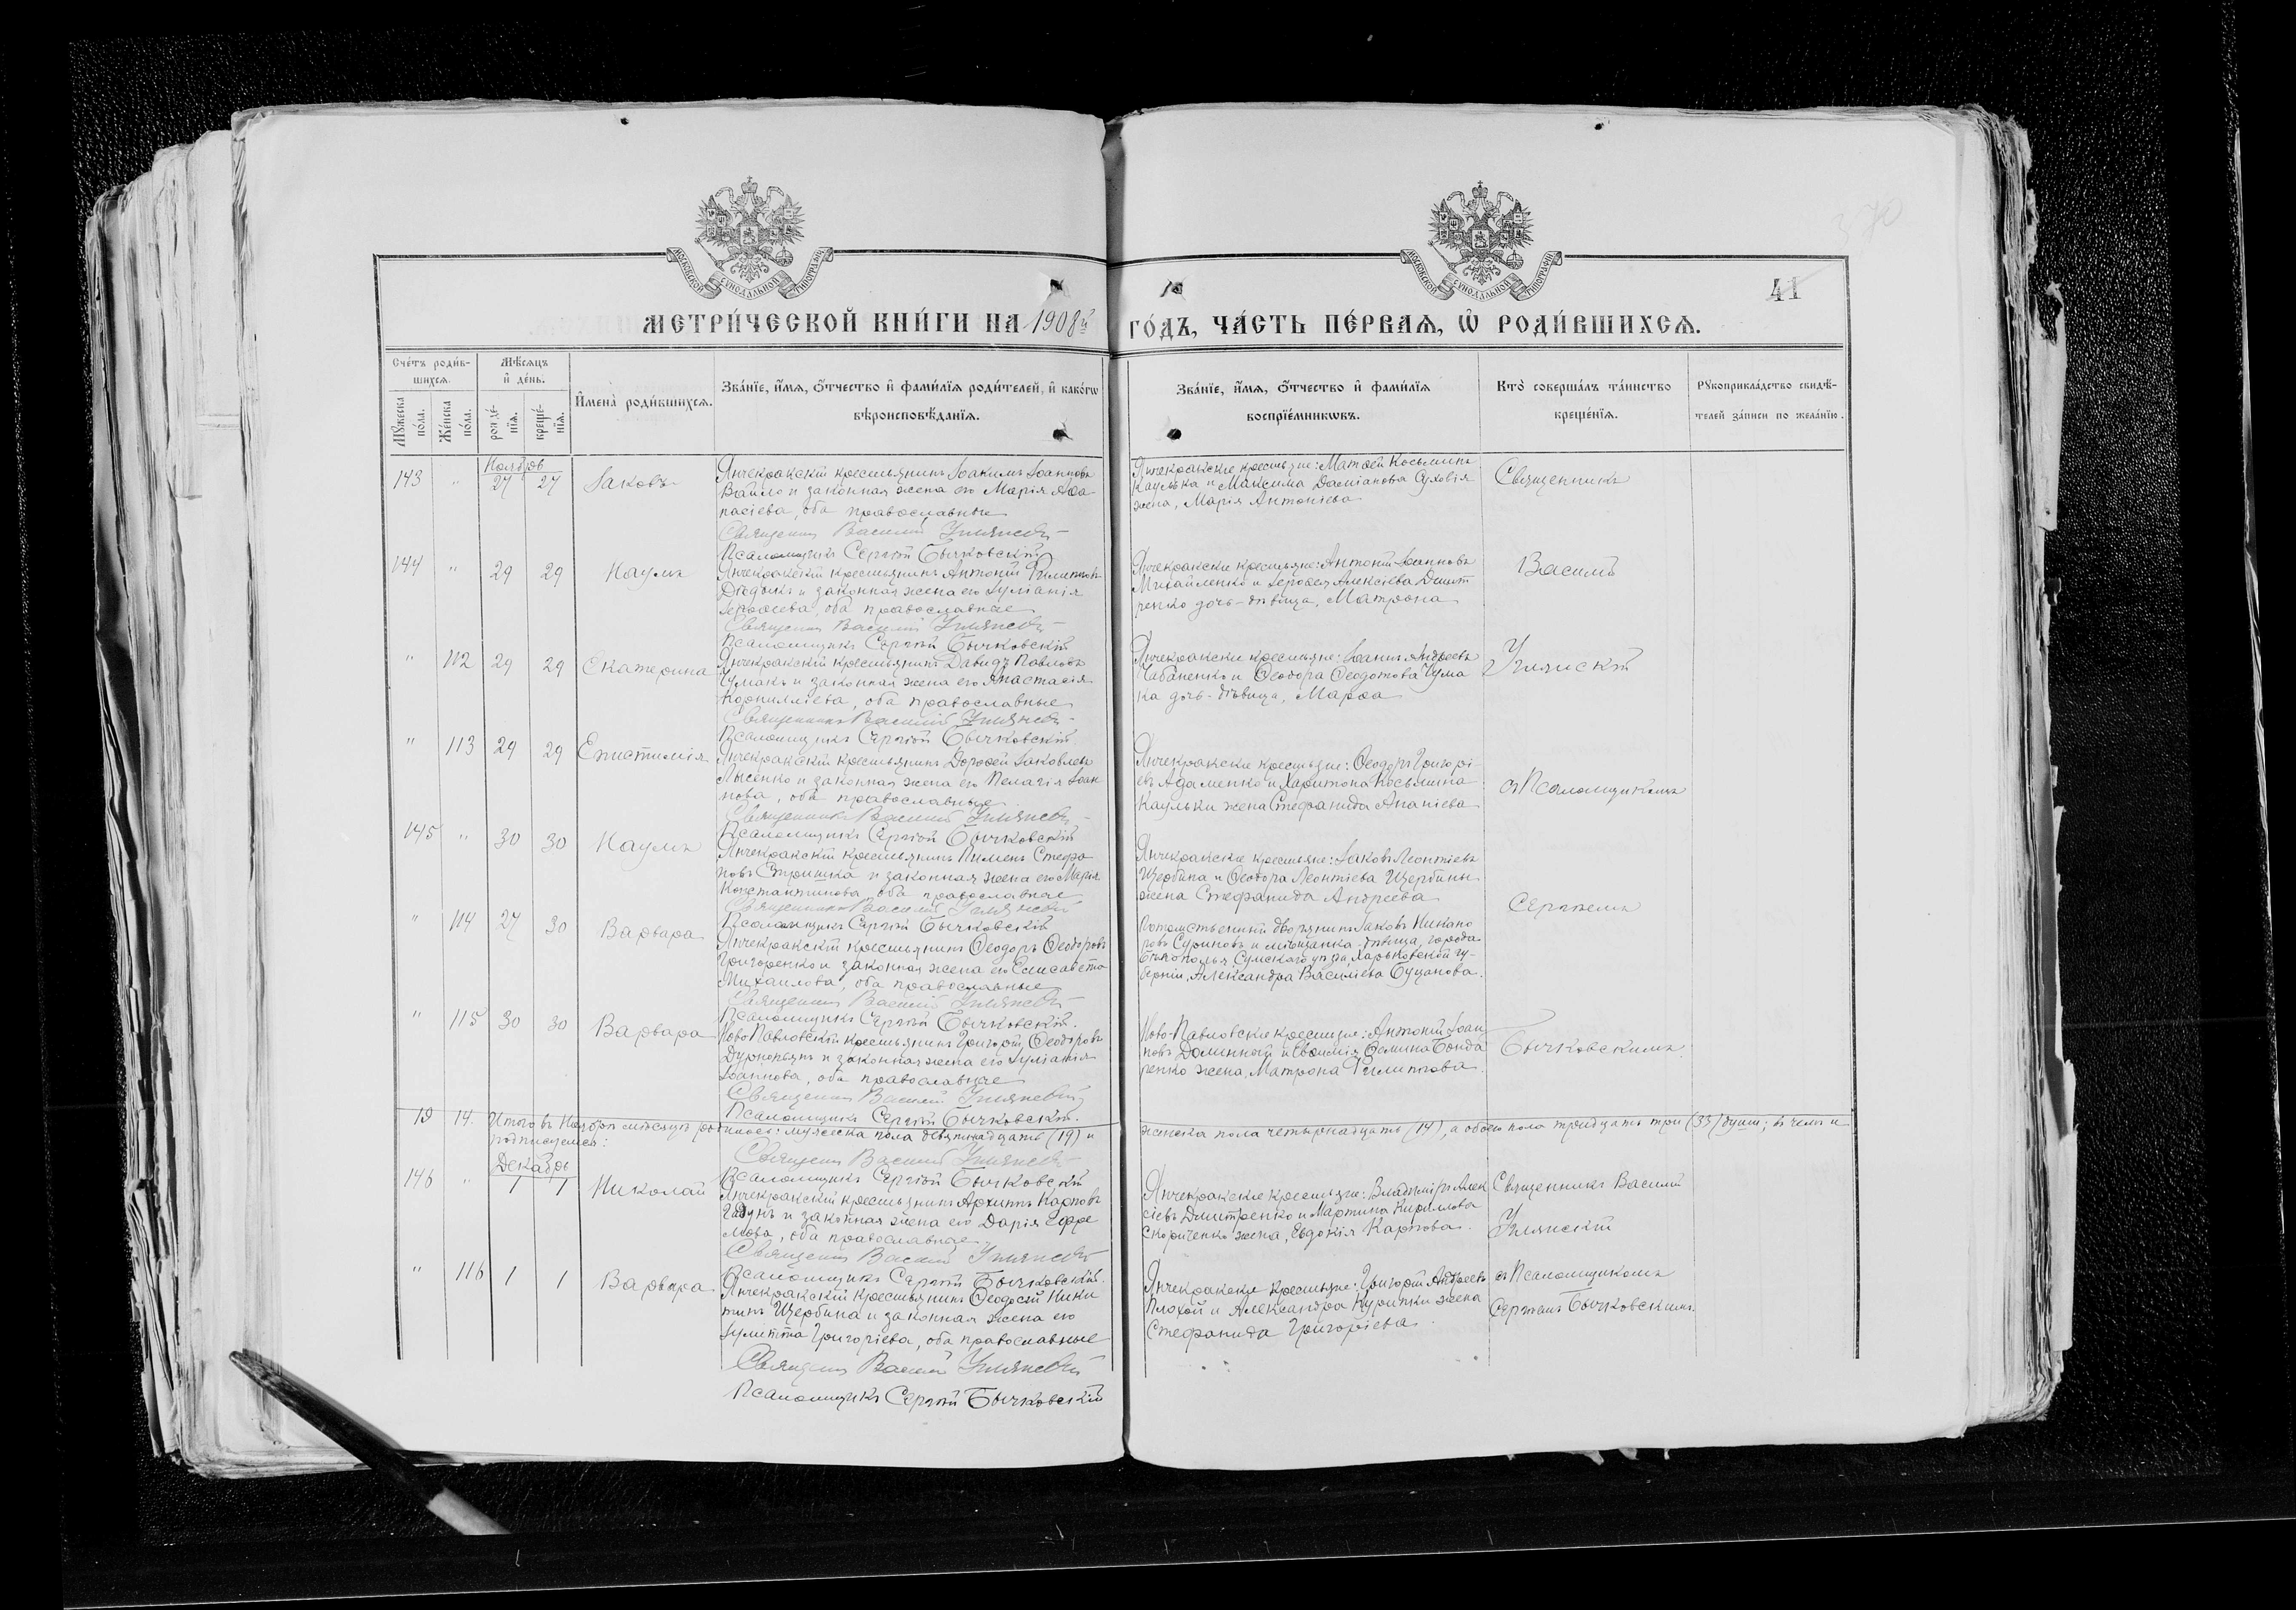 370
МОСКОВСКОЙ СѴНОДАЛЬНОЙ ТИПОГРАФІИ
МОСКОВСКОЙ СѴНОДАЛЬНОЙ ТИПОГРАФІИ
41
МЕТРИ́ЧЕСКОЙ КНИ́ГИ НА 1908й ГО́ДЪ, ЧА́СТЬ ПЕ́РВАЯ, Ѽ РОДИ́ВШИХСЯ.
Сче́тъ роди́в-
шихся.
Мѣ́сяцъ
и҆ де́нь.
Мꙋ́жеска по́ла.
Же́нска по́ла.
рожде́-
нїя.
креще́-
нїя.
И҆мена̀ роди́вшихся.
Зва́нїе, и҆́мя, ѻ҆́тчество и҆ фами́лїя роди́телей, и҆ како́гѡ
вѣроисповѣ́данїя.
Зва́нїе, и҆́мя, ѻ҆́тчество и҆ фами́лїя
воспрїе́мникѡвъ.
Кто̀ соверша́лъ та́инство
креще́нїя.
Рꙋкоприкла́дство свидѣ́-
телей за́писи по жела́нїю.
Ноябрь
143 " 27 27 Іаковъ
Янчекракскій крестьянинъ Іоакимъ Іоанновъ
Вайло и законная жена его Марія Аѳа-
насіева, оба православные
Священникъ Василій
Псаломщикъ Сергій Бычковскій
Янчекракские крестьяне: Матѳей Косьминъ
Каулька и Максима Даміанова Суховія
жена, Марія Антоніева
Священникъ
144 " 29 29 Наумъ
Янчекракскій крестьянинъ Антоній Филиппов
Дядыкъ и законная жена его Іуліанія
Іероѳеева, оба православные
Священникъ Василій
Псаломщикъ Сергій Бычковскій
Янчекракские крестьяне: Антоній Іоанновъ
Михайленко и Іероѳея Алексіева Дмит
ренко дочь-дѣвица, Матрона
Василій
" 112 29 29 Екатерина
Янчекракскій крестьянинъ Давидъ Павловъ
Чумакъ и законная жена его Анастасія
Корниліева, оба православные
Священникъ Василій
Псаломщикъ Сергій Бычковскій
Янчекракские крестьяне: Іоаннъ Андреевъ
Чабаненко и Ѳеодора Ѳеодотова Чума
ка дочь-дѣвица, Марѳа
" 113 29 29 Епистимія
Янчекракскій крестьянинъ Дороѳей Іаковлевъ
Лысенко и законная жена его Пелагія Іоан
нова, оба православные
Священникъ Василій
Псаломщикъ Сергій Бычковскій
Янчекракские крестьяне: Ѳеодоръ Григорі
евъ Адаменко и Харитона Косьмина
Каульки жена Стефанида Ананіева
съ Псаломщикомъ
145 " 30 30 Наумъ
Янчекракскій крестьянинъ Пименъ Стефа
новъ и законная жена его Марія
Константинова, оба православные
Священникъ Василій
Псаломщикъ Сергій Бычковскій
Янчекракские крестьяне: Іаковъ Леонтіевъ
Щербина и Ѳеодора Леонтіева Щербины
жена Стефанида Андреева
Сергіемъ
" 114 27 30 Варвара
Янчекракскій крестьянинъ Ѳеодоръ Ѳеодоровъ
Григоренко и законная жена его Елисавета
Михаилова, оба православные
Священникъ Василій
Псаломщикъ Сергій Бычковскій.
Потомственный дворянинъ Іаковъ Никано
ровъ Суриновъ и мѣщанка-дѣвица, города
Бѣлополья Сумскаго уѣзда, Харьковской гу-
берніи, Александра Василіева Буцанова.
" 115 30 30 Варвара
Ново-Павловскій крестьянинъ Григорій Ѳеодоровъ
и законная жена его Іуліанія
Іоаннова, оба православные
Священникъ Василій
Псаломщикъ Сергій Бычковскій.
Ново-Павловские крестьяне: Антоній Іоан
новъ Долинный и Евѳимія Семина Бонда
ренко жена, Матрона Филиппова.
Бычковскимъ.
19 14. Итого въ Ноябрѣ мѣсяцѣ родилось: мужеска пола девятнадцать (19) и женска пола четырнадцать (14), а обоего пола тридцать три (33) душъ; въ чемъ и
подписуемся:
Священникъ Василій
Псаломщикъ Сергій Бычковскій
Декабрь
146 " 1 1 Николай
Янчекракскій крестьянинъ Архиппъ Карповъ
и законная жена его Дарія Ефре
мова, оба православные
Священникъ Василій
Псаломщикъ Сергій Бычковскій.
Янчекракские крестьяне: Владиміръ Алек
сіевъ Дмитренко и Мартина Кириллова
Скориченко жена, Евдокія Карпова.
Священникъ Василій
" 116 1 1 Варвара
Янчекракскій крестьянинъ Ѳеодосій Ники
тинъ Щербина и законная жена его
Іулитта Григоріева, оба православные
Священникъ Василій
Псаломщикъ Сергій Бычковскій
Янчекракские крестьяне: Григорій Андреевъ
Плохой и Александра Курипки жена
Стефанида Григоріева.
съ Псаломщикомъ
Сергіемъ Бычковскимъ.